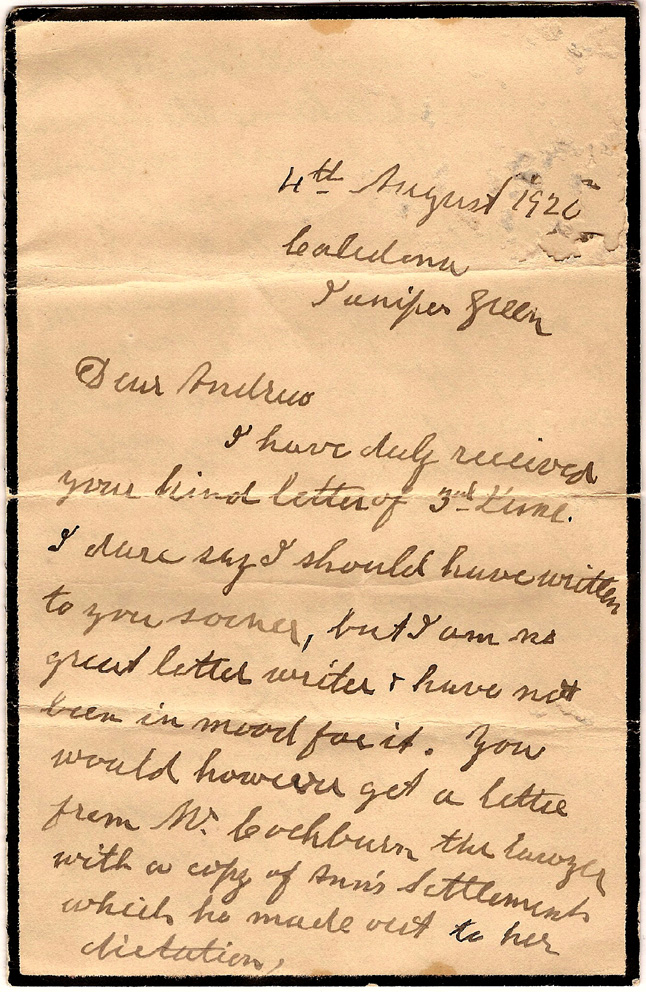 4th August 1920
Caledonia
Juniper Green
Dear Andrew
I have duly received
your kind letter of 3rd June.
I dare say I should have written
to you sooner, but I am no
great letter writer & have not
been in mood for it. You
would however get a letter
from Mr. Cockburn the lawyer
with a copy of Ann's Settlements
which he made out to her
dictation,